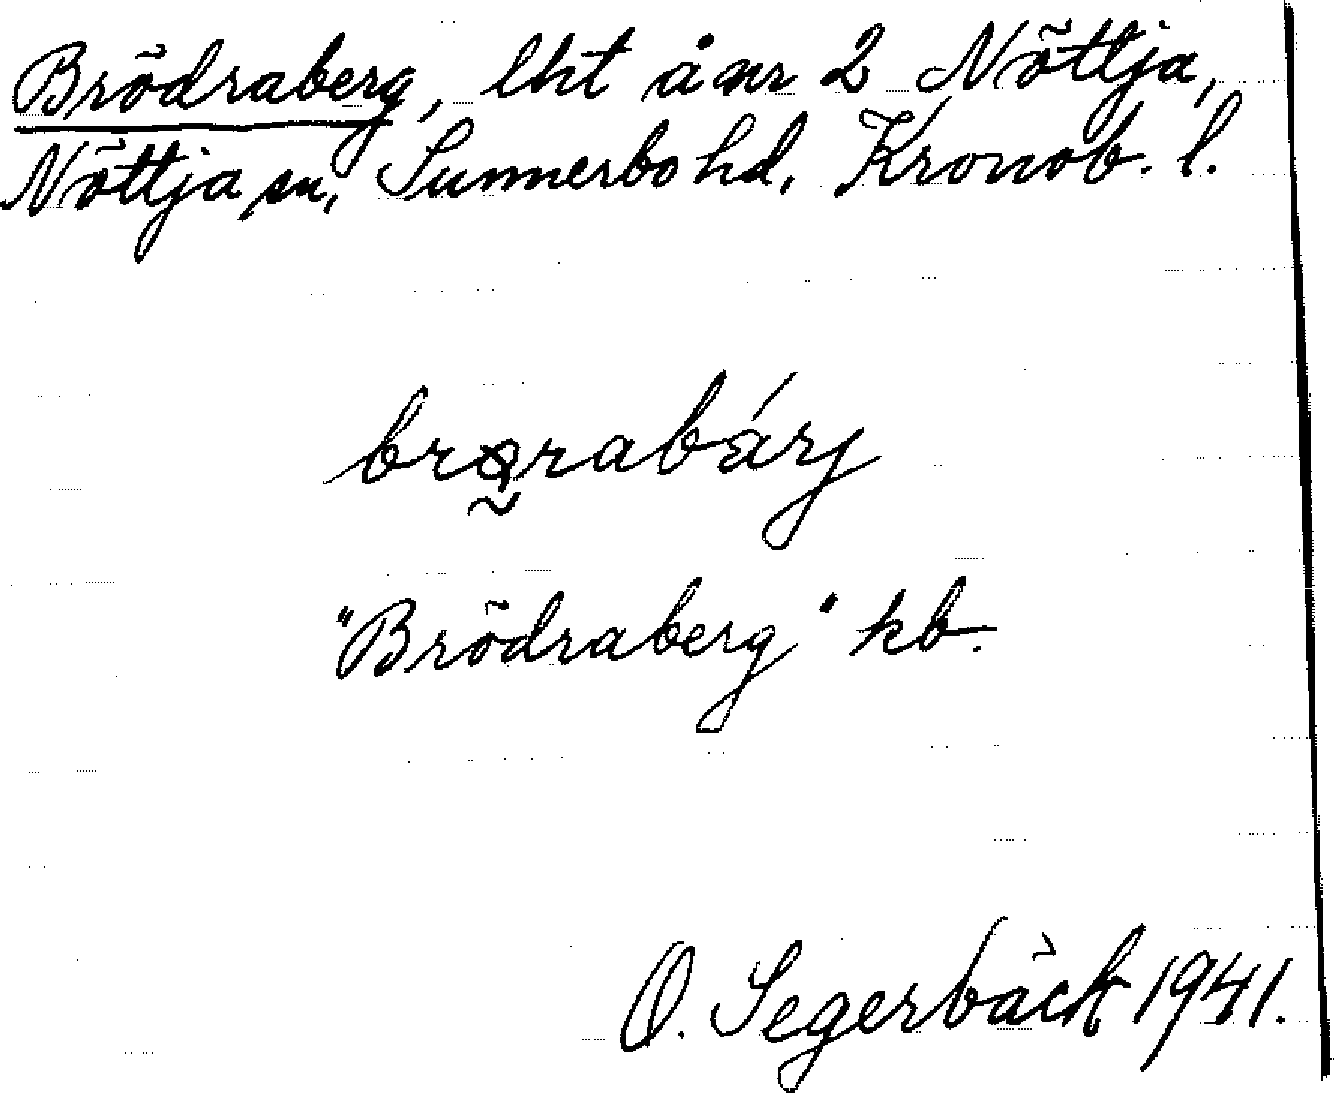 Brödraberg, lht å nr 2 Nöttja,
Nöttja sn, Sunnerbo hd, Kronob. l.
"Brödraberg" kb.
O. Segerbäck 1941.